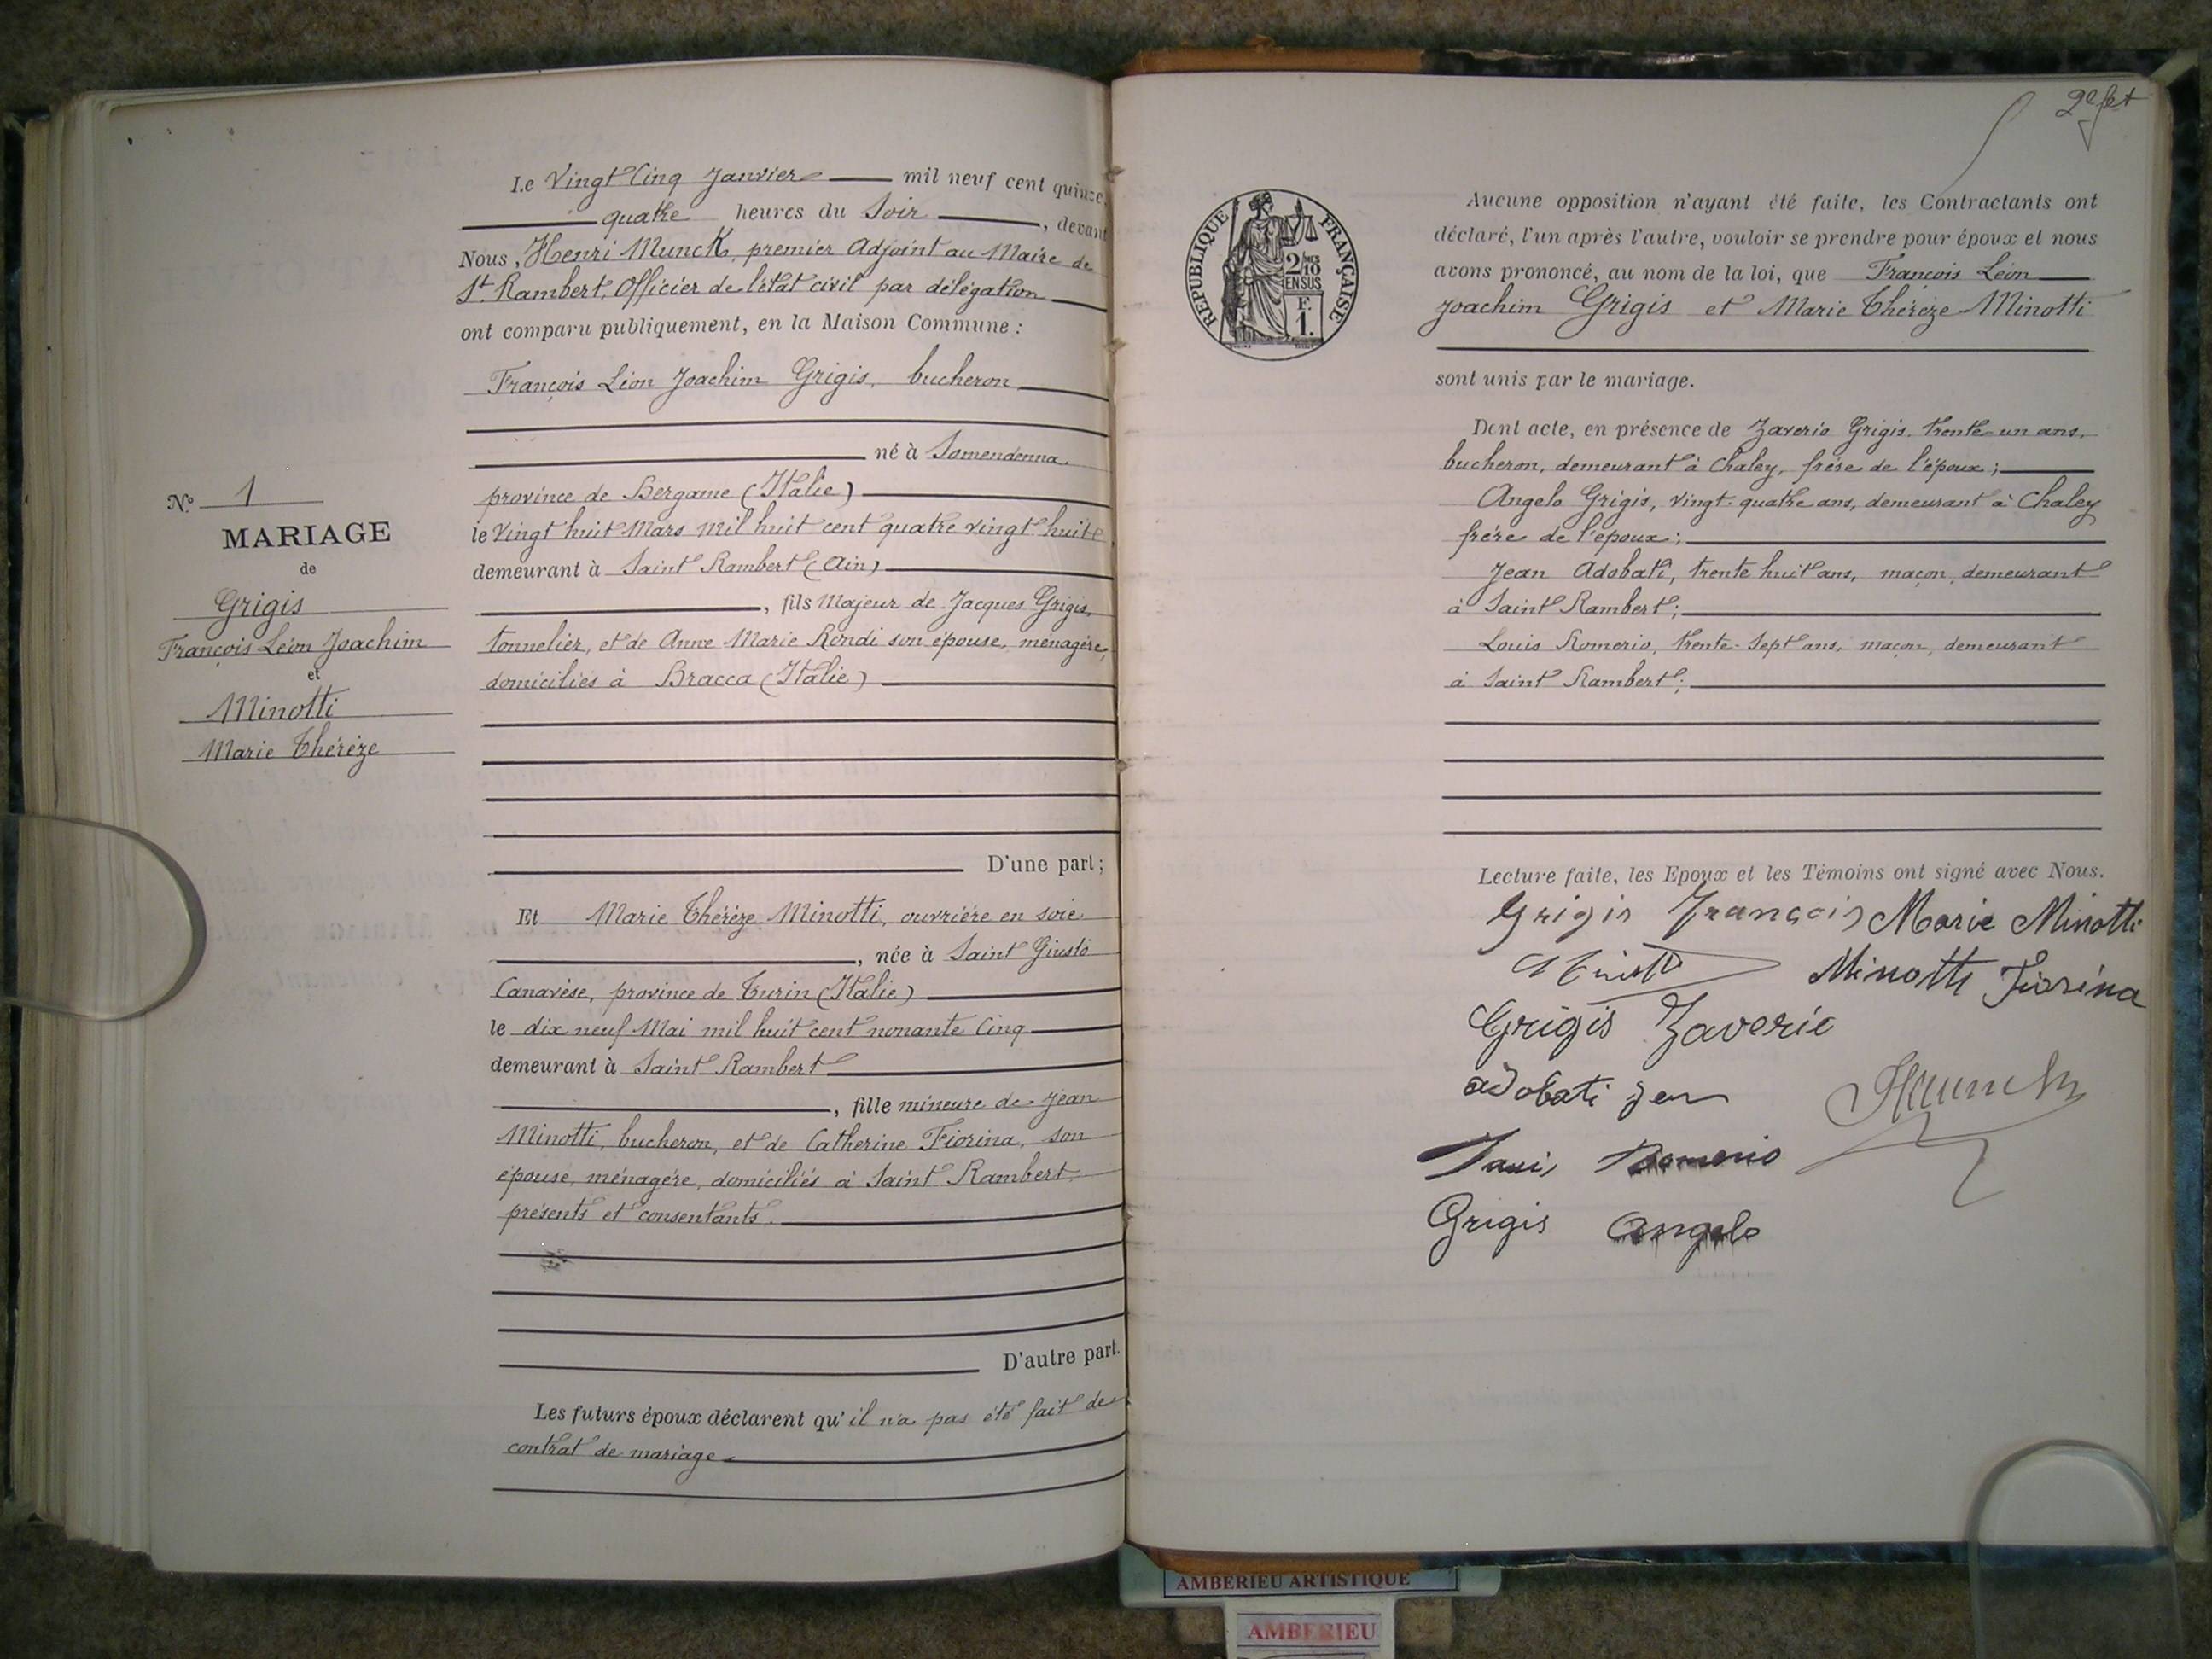 Le Vingt Cinq Janvier mil neuf cent quinze,
quatre heures du Soir, devant
Nous, Henri Munck, premier Adjoint au Maire de
St. Rambert, Officier de l'état civil par délégation
ont comparu publiquement, en la Maison Commune :
François Léon Joachim Grigis, bucheron
né à Somendenna.
province de Bergame (Italie)
le Vingt huit Mars mil huit cent quatre vingt huit
demeurant à Saint Rambert (Ain)
, fils Majeur de Jacques Grigis,
tonnelier, et de Anne Marie Rondi son épouse, ménagère,
domiciliés à Bracca (Italie)
D'une part ;
Et Marie Thérèze Minotti, ouvrière en soie
, née à Saint Giusto
Canavèse, province de Turin (Italie)
le dix neuf Mai mil huit cent nonante Cinq
demeurant à Saint Rambert
, fille mineure de Jean
Minotti, bucheron, et de Catherine Fiorina, son
épouse, ménagère, domiciliés à Saint Rambert,
présents et consentants.
D'autre part.
Les futurs époux déclarent qu'il n'a pas été fait de
contrat de mariage
N.° 1
MARIAGE
de
Grigis
François Léon Joachim
et
Minotti
Marie Thérèze
REPUBLIQUE FRANÇAISE
2/10 MES
EN SUS
F.
1.
Aucune opposition n'ayant été faite, les Contractants ont
déclaré, l'un après l'autre, vouloir se prendre pour époux et nous
avons prononcé, au nom de la loi, que François Léon
Joachim Grigis et Marie Thérèze Minotti
sont unis par le mariage.
Dont acte, en présence de Zaverio Grigis, trente un ans,
bucheron, demeurant à Chaley, frère de l'époux ;
Angelo Grigis, vingt-quatre ans, demeurant à Chaley
frère de l'époux ;
Jean Adobati, trente huit ans, maçon, demeurant
à Saint Rambert ;
Louis Romerio, trente-sept ans, maçon, demeurant
à Saint Rambert ;
Lecture faite, les Epoux et les Témoins ont signé avec Nous.
Grigis François Marie Minotti
Minotti Fiorina
Grigis Zaverio
adobati Jean
Romerio
Grigis Angelo
AMBERIEU ARTISTIQUE
AMBERIEU